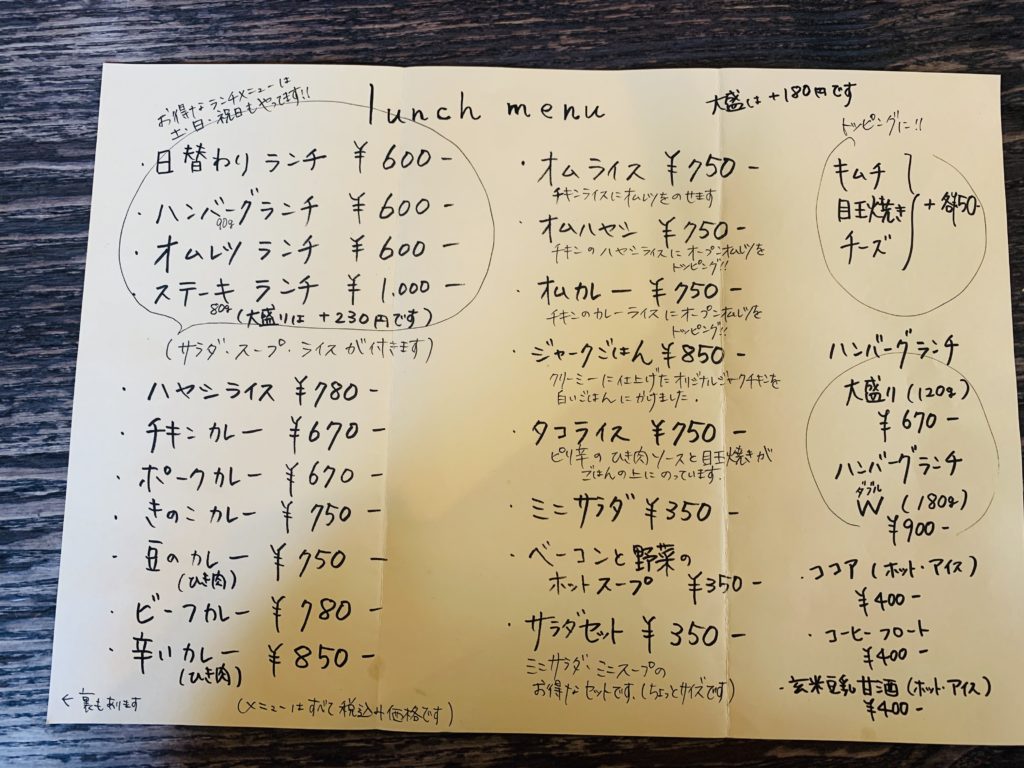 お得なランチメニューは
土・日・祝日もやってます!!
lunch menu
大盛は +180円です
・日替わりランチ ¥600-
・ハンバーグランチ ¥600-
90g
・オムレツランチ ¥600-
・ステーキランチ ¥1,000-
80g (大盛りは +230円です)
(サラダ・スープ・ライスが付きます)
・ハヤシライス ¥780-
・チキンカレー ¥670-
・ポークカレー ¥670-
・きのこカレー ¥750-
・豆のカレー ¥750-
(ひき肉)
・ビーフカレー ¥780-
・辛いカレー ¥850-
(ひき肉)
← 裏もあります
(メニューはすべて税込み価格です)
・オムライス ¥750-
チキンライスにオムレツをのせます
・オムハヤシ ¥750-
チキンのハヤシライスにオープンオムレツを
トッピング!!
・オムカレー ¥750-
チキンのカレーライスにオープンオムレツを
トッピング!!
・ジャークごはん ¥850-
クリーミーに仕上げたオリジナルジャークチキンを
白いごはんにかけました.
・タコライス ¥750-
ピリ辛のひき肉ソースと目玉焼きが
ごはんの上にのっています.
・ミニサラダ ¥350-
・ベーコンと野菜の
ホットスープ ¥350-
・サラダセット ¥350-
ミニサラダ・ミニスープの
お得なセットです.(ちょっとサイズです)
トッピングに!!
キムチ
目玉焼き + 各50-
チーズ
ハンバーグランチ
大盛り(120g)
¥670-
ハンバーグランチ
ダブル
W (180g)
¥900-
・ココア(ホット・アイス)
¥400-
・コーヒーフロート
¥400-
・玄米豆乳甘酒(ホット・アイス)
¥400-